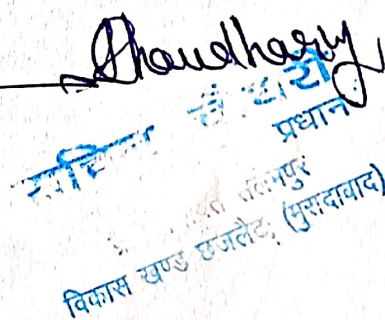 Chaudhary
चौधरी
प्रधान
सलेमपुर
विकास खण्ड छजलैट, (मुरादाबाद)